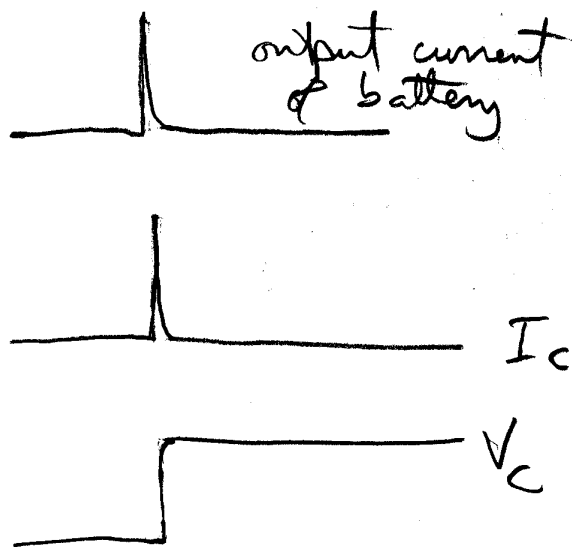 output current
of battery
I c
V c